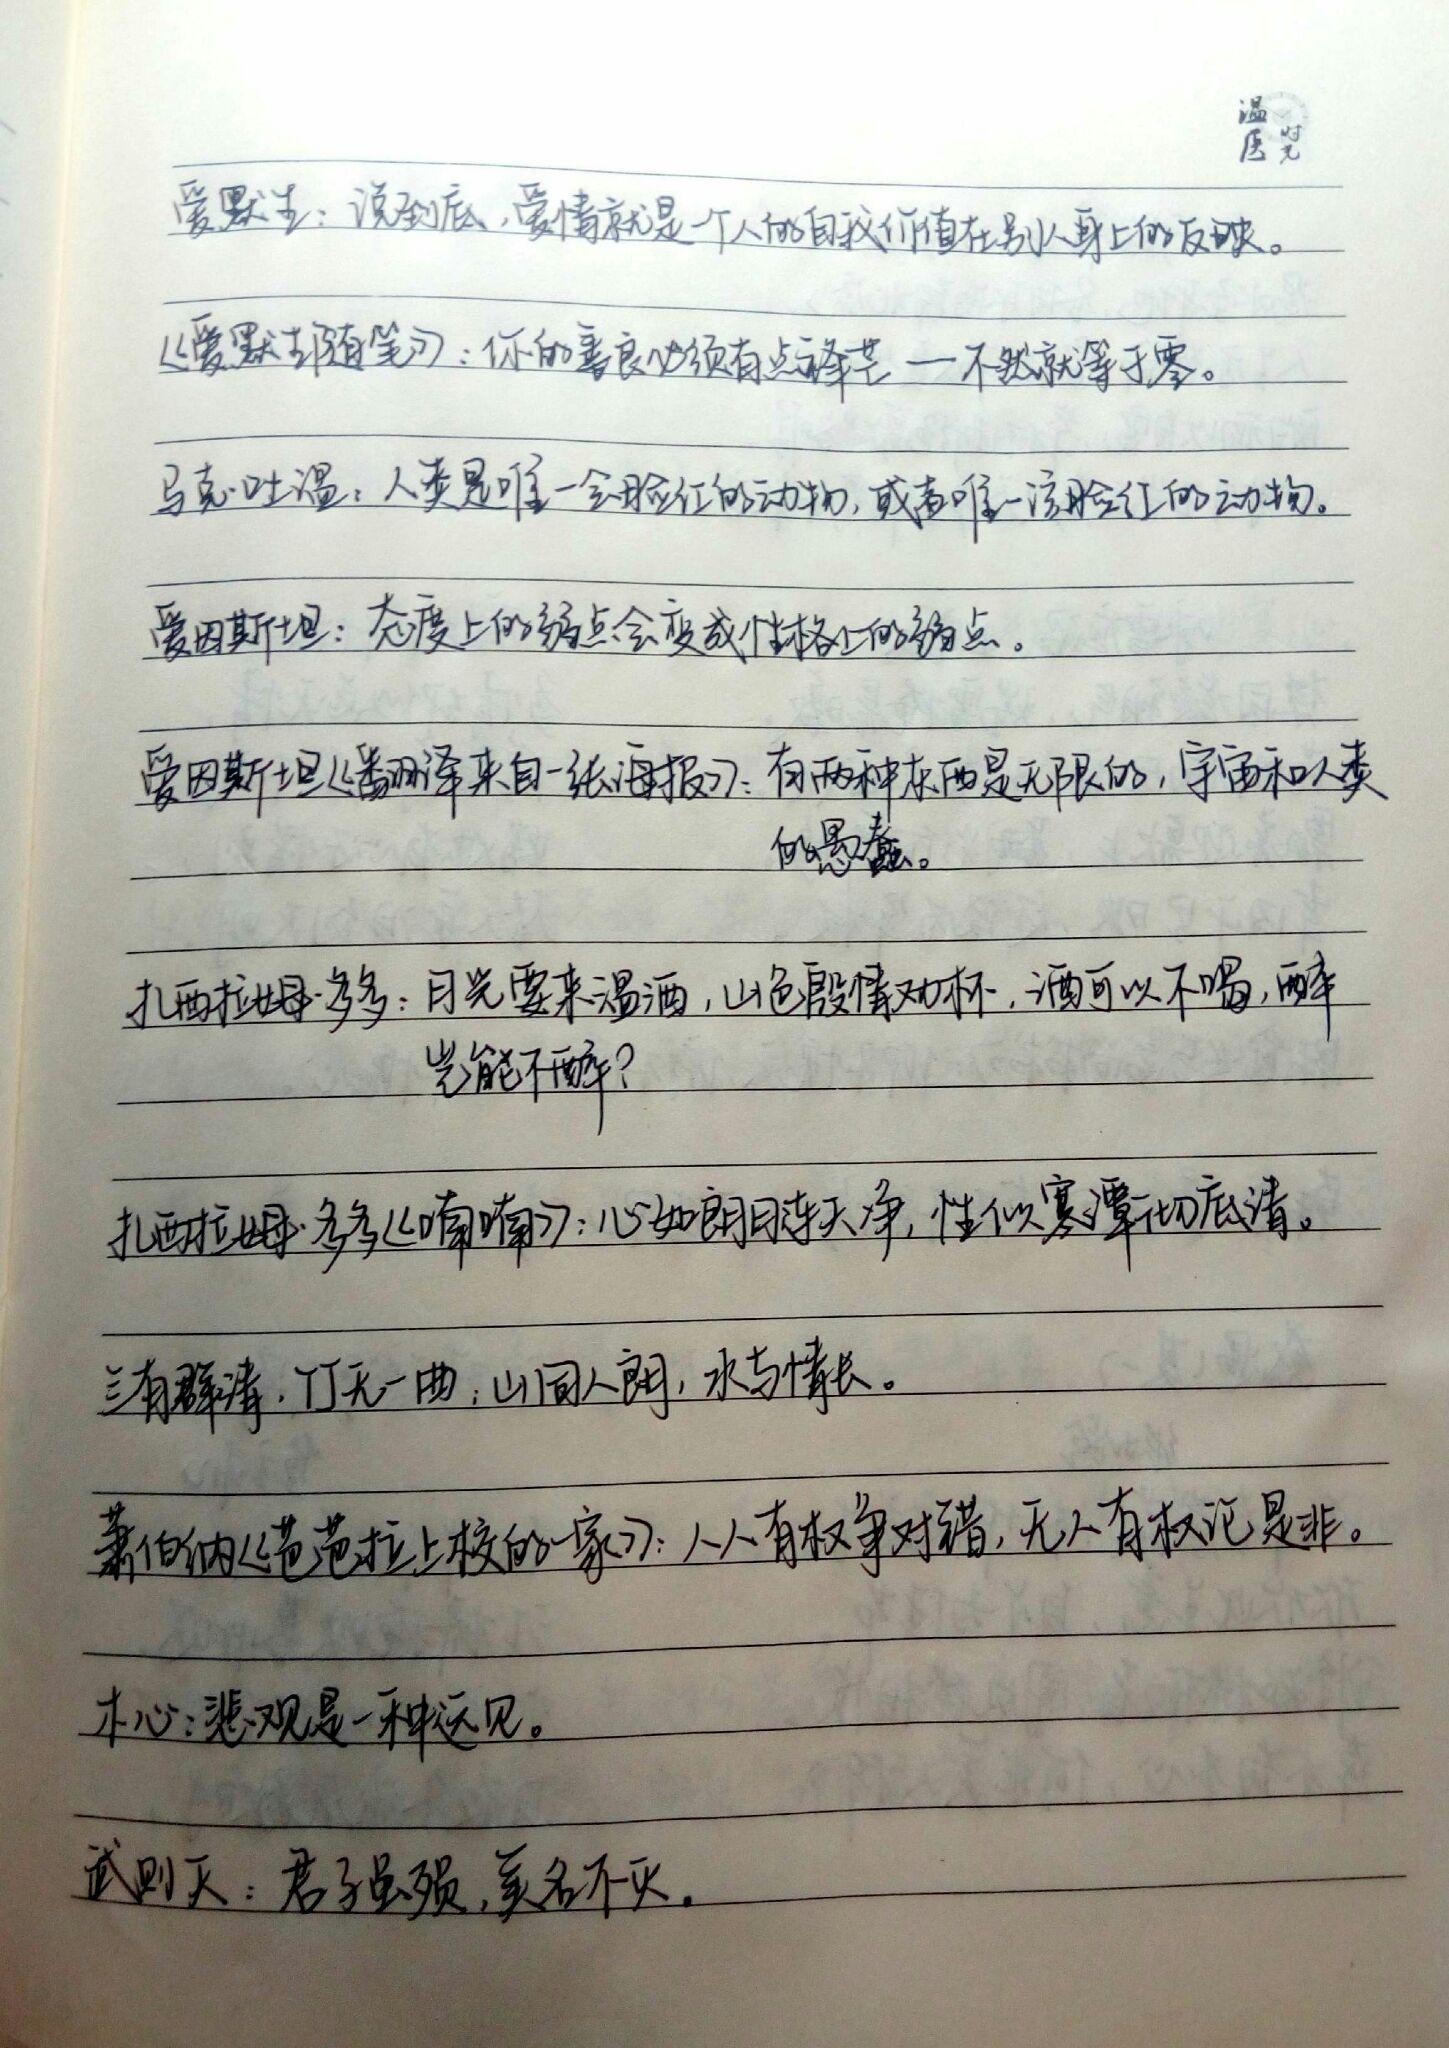 温医 时光
爱默生：说到底，爱情就是一个人的自我价值在别人身上的反映。
《爱默生随笔》：你的善良必须有点锋芒—不然就等于零。
马克·吐温：人类是唯一会脸红的动物，或者唯一该脸红的动物。
爱因斯坦：态度上的弱点会变成性格上的弱点。
爱因斯坦《番丽泽来自一张海报》：有两种东西是无限的，宇宙和人类
的愚蠢。
扎西拉姆·多多：月光要来温酒，山色殷情劝杯，酒可以不喝，醉
岂能不醉？
扎西拉姆·多多《喃喃》：心如朗日连天净，性似寒潭彻底清。
兰有群清，竹无一曲，山同人朗，水与情长。
萧伯纳《芭芭拉上校的一家》：人人有权争对错，无人有权论是非。
木心：悲观是一种远见。
武则天：君子虽殒，美名不灭。